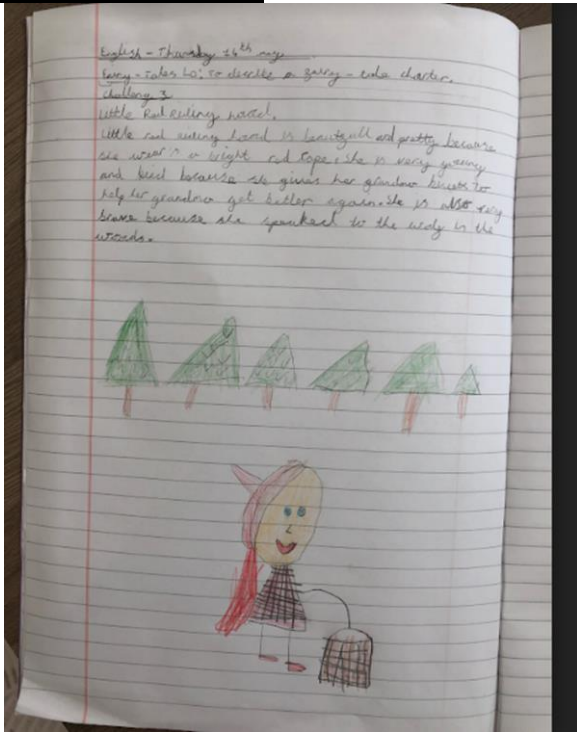 English - Thursday 16th may
Fairy-tales LO: To describe a fairy-tale charter.
Challeng 3
Little Red Riding hood.
Little red riding hood is beautyfull and pretty because
she wear's a bright red cape. She is very
and kind because she gives her grandma to
help her grandma get better again. She is also very
brave because she speaked to the in the
woods.